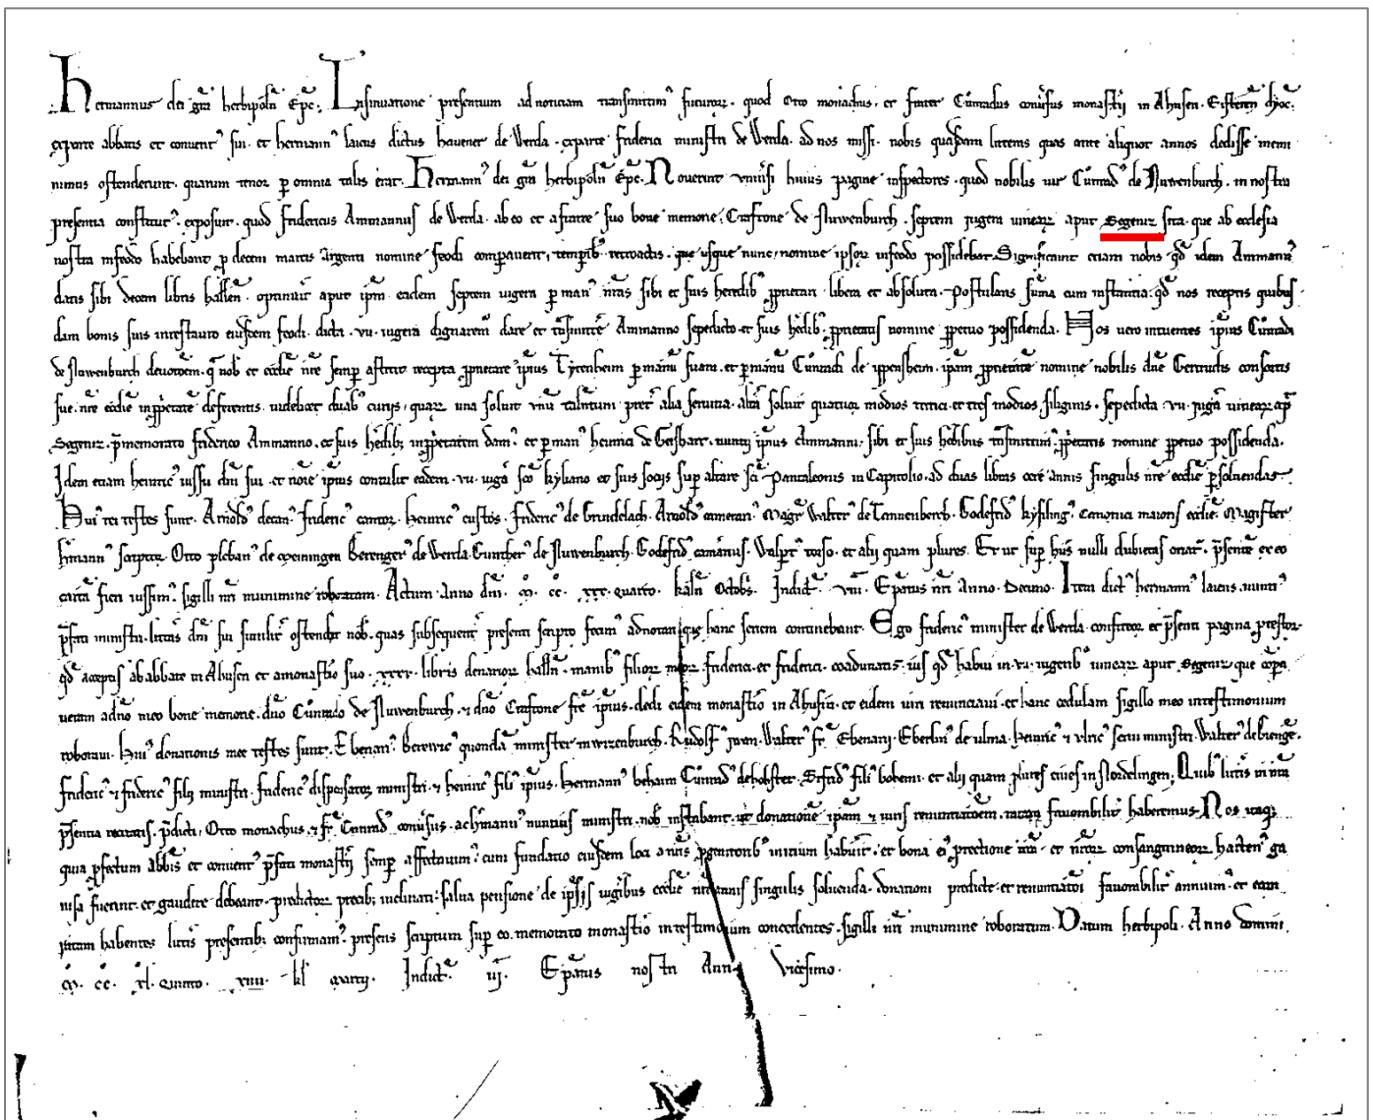 Hermannus dei gra herbipoln Epc. Insinuatione presentium ad noticiam transmittim futuror. quod Otto monachus. et frater Cunradus conuersus monastii in Ahusen. Eisteten dyoc.
exparte abbatis et conuent sui. et hermann laicus dictus hauener de Werda. exparte friderici ministri de Werda. ad nos missi. nobis quasdam litteras quas ante aliquot annos dedisse memi
nimus ostenderunt. quarum tenor p omnia talis erat. Hermann dei gra herbipoln Epc. Nouerint uniuersi huius pagine inspectores. quod nobilis uir Cunrad de Nuwenburch. in nostra
presentia constitut. exposuit. quod fridericus Ammannus de Werda. ab eo et a fratre suo bone memorie. Craftone de Nuwenburch. septem iugera uinear aput Segeniz sita. que ab ecclesia
nostra infeodo habebant p decem marcis argenti nomine feodi comparauerit. temporib retroactis. que usque nunc nomine ipsor infeodo possidebat. Significauit etiam nobis qd idem Ammann
datis sibi decem libris hallen. optinuit aput ipm. eadem septem iugera p man nras sibi et suis heredib pprietari libera et absoluta. Postulans suma cum instantia. qd nos receptis quibus
dam bonis suis inrestauro eiusdem feodi. dicta. vii. iugera dignarem dare et tnsmittere Ammanno sepedicto. et suis hedib. pprietatis nomine ppetuo possidenda. Nos uero intuentes ipius Cunradi
de Nuwenburch deuotoem. q nob et ecclie nre semp astitit. recepta pprietate ipius Tyrenheim p manu suam. et p manu Cunradi de ippensheim. ipam pprietate nomine nobilis dne Gertrudis consortis
sue. nre ecclie inpprietate deseruientis. uidelicet duab curiis. quar una soluit unu talentum preter alia seruitia. altera soluit quatuor modios tritici. et tres modios siliginis. sepedicta. vii. iugera uinear ap
Segeniz. pmemorato friderico Ammanno. et suis hedib; inpprietatem dam. et p man heinrici de Geisbart. nuntij ipius Ammanni. sibi et suis hedibus tnsmittim. pprietatis nomine ppetuo possidenda.
Idem etiam heinric iussu dni sui. et noie ipius contulit eadem. vii. iuga sco kyliano et suis sociis sup altare sci Pantaleonis in Capitolio. ad duas libras cere annis singulis nre ecclie psoluendas.
Hui rei testes sunt. Arnold decan. frideric cantor. heinric custos. frideric de Grindelach. Arnold camerari. Magr Walter de Tannenberch. Godefrid kyfiling. canonici maioris ecclie. Magister
hmann scriptor. Otto pleban de meiningen Berenger de Werda. Gunther de Nuwenburch. Godefrid camanus. Walpt torso. et alij quam plures. Et ut sup hiis nulli dubietas oriatur. psente exeo
carta fieri iussim. sigilli nri munimine roboratam. Actum. anno dni. m. cc. xxx. quarto. kaln Octobs. Indict. viii. Epatus nri anno. Decimo. Item dict hermann laicus. nunti
pfati ministri. littas dni sui similit ostendit nob. quas subsequent presenti scripto fecim adnotari que hanc seriem continebant. Ego frideric minister de Werda. confiteor et psenti pagina protestor.
qd acceptis ab abbate in Ahusen et a monastio suo. xxxv. libris denarior halln. manib filior meor. friderici. et friderici. coadunatis. ius qd habui in. vii. iugerib uinear aput Segeniz que copa
ueram adno meo bone memorie. dno Cunrado de Nuwenburch. et dno Craftone fre ipius. dedi eidem monastio in Ahusin. et eidem iuri renunciaui. et hanc cedulam sigillo meo intestimonium
roboraui. Hui donationis mee testes sunt. Ebenari. Berewic quonda minister in wirzenburch. Rudolf iuuen. Walter fr Ebenarij. Eberlin de ulma. heinric et ulric serui ministri. Walter de bienge.
frideric et frideric filij ministri. frideric dispensator ministri. et heinric fili ipius. hermann behaim Cunrad de hohster. Sifrid fili bohemi. et alij quam plures ciues in Nordelingen. Quib littis in nra
psentia recitatis. pdicti. Otto monachus. et fr Cunrad conusus. ac hmann nuntius ministri. nob instabant. ut donatione ipam et iuris renuntiatoem. ratas fauorabilit haberemus. Nos itaq
quia pfectum abbis et conuent pfati monastij semp affectauim. cum fundatio eiusdem loci a nris pgenitorib initium habuit. et bona ei ptectione nra. et nror consanguineor hacten ga
uisa fuerint. et gaudere debeant. predictor precib; inclinati. salua pensione de ipsis iugibus ecclie nre annis singulis soluenda. donationi predicte. et renuntiatoi fauorabilit annuim. et eam
ratam habentes littis presentib; confirmam. presens scriptum sup eo. memorato monastio intestimonium concedentes. sigilli nri munimine roboratum. Datum herbipoli. Anno domini.
m. cc. xl. quinto. xiiii. kl martij. Indict. iij. Epatus nostri Anno Vicesimo.